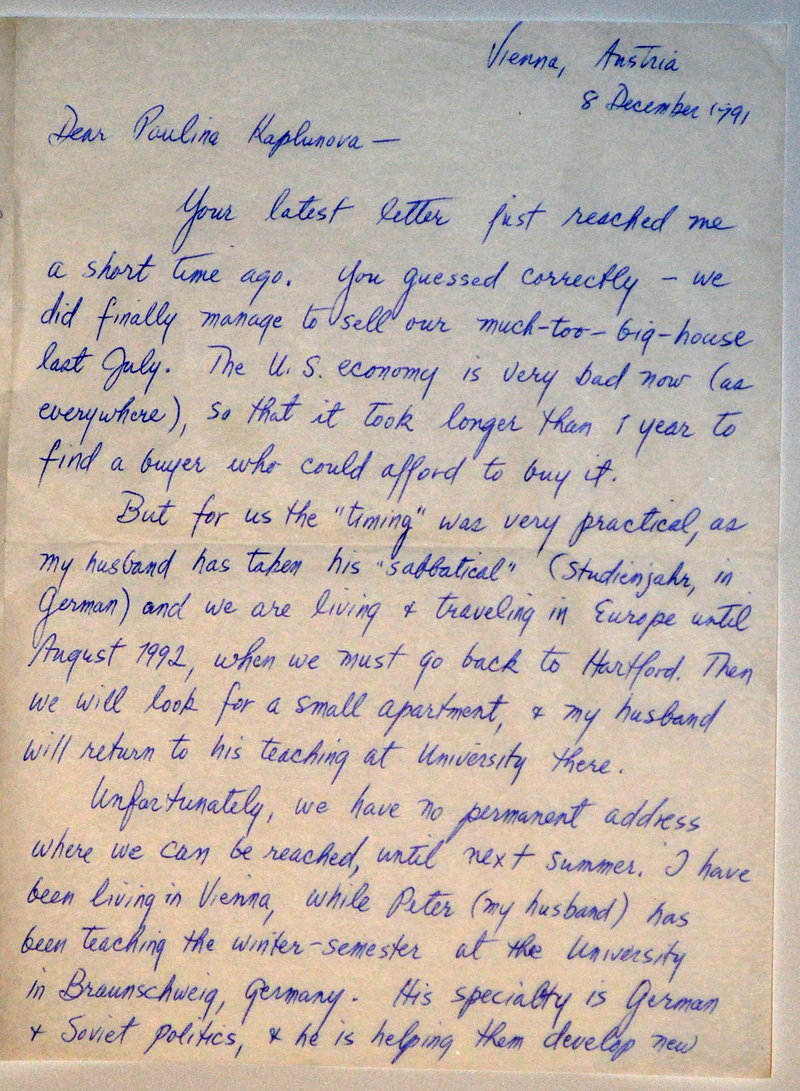 Vienna, Austria
8 December 1991
Dear Paulina Kaplunova —
Your latest letter just reached me
a short time ago. You guessed correctly – we
did finally manage to sell our much-too-big-house
last July. The U.S. economy is very bad now (as
everywhere), so that it took longer than 1 year to
find a buyer who could afford to buy it.
But for us the "timing" was very practical, as
my husband has taken his "sabbatical" (Studienjahr, in
German) and we are living & traveling in Europe until
August 1992, when we must go back to Hartford. Then
we will look for a small apartment, & my husband
will return to his teaching at University there.
Unfortunately, we have no permanent address
where we can be reached, until next summer. I have
been living in Vienna, while Peter (my husband) has
been teaching the winter-semester at the University
in Braunschweig, Germany. His specialty is German
& Soviet politics, & he is helping them develop new